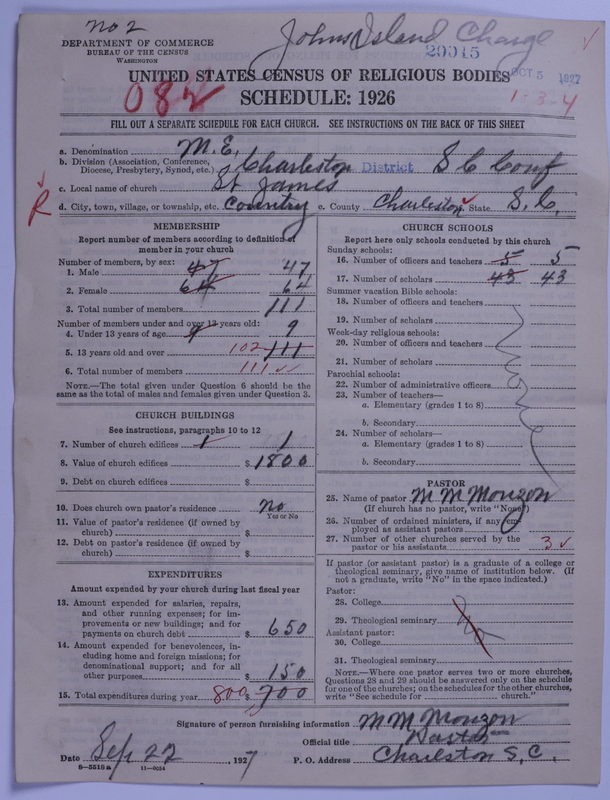 No 2
Johns Island Charge
DEPARTMENT OF COMMERCE
BUREAU OF THE CENSUS
WASHINGTON
20015
OCT 5 1927
UNITED STATES CENSUS OF RELIGIOUS BODIES
082
SCHEDULE: 1926
1-3-4
FILL OUT A SEPARATE SCHEDULE FOR EACH CHURCH. SEE INSTRUCTIONS ON THE BACK OF THIS SHEET
a. Denomination M.E.
b. Division (Association, Conference, Diocese, Presbytery, Synod, etc.) Charleston District S C Conf
c. Local name of church St James
R
d. City, town, village, or township, etc. Country e. County Charleston State S.C.
MEMBERSHIP
Report number of members according to definition of
member in your church
Number of members, by sex:
1. Male 47 47
2. Female 64 64
3. Total number of members 111
Number of members under and over 13 years old:
4. Under 13 years of age 9 9
5. 13 years old and over 102 111
6. Total number of members 111
NOTE.—The total given under Question 6 should be the
same as the total of males and females given under Question 3.
CHURCH BUILDINGS
See instructions, paragraphs 10 to 12
7. Number of church edifices 1 1
8. Value of church edifices $ 1800
9. Debt on church edifices $
10. Does church own pastor's residence No
Yes or No
11. Value of pastor's residence (if owned by
church) $
12. Debt on pastor's residence (if owned by
church) $
EXPENDITURES
Amount expended by church during last fiscal year
13. Amount expended for salaries, repairs,
and other running expenses; for im-
provements or new buildings; and for
payments on church debt $ 650
14. Amount expended for benevolences, in-
cluding home and foreign missions; for
denominational support; and for all
other purposes $ 150
15. Total expenditures during year 800 $ 700
CHURCH SCHOOLS
Report here only schools conducted by this church
Sunday schools:
16. Number of officers and teachers 5 5
17. Number of scholars 43 43
Summer vacation Bible schools:
18. Number of officers and teachers
19. Number of scholars
Week-day religious schools:
20. Number of officers and teachers
21. Number of scholars
Parochial schools:
22. Number of administrative officers
23. Number of teachers—
a. Elementary (grades 1 to 8)
b. Secondary
24. Number of scholars—
a. Elementary (grades 1 to 8)
b. Secondary
None
PASTOR
25. Name of pastor M M Mouzon
(If church has no pastor, write "None")
26. Number of ordained ministers, if any em-
ployed as assistant pastors
27. Number of other churches served by the
pastor or his assistants 3
If pastor (or assistant pastor) is a graduate of a college or
theological seminary, give name of institution below. (If
not a graduate, write "No" in the space indicated.)
Pastor:
28. College
29. Theological seminary
Assistant pastor:
30. College
31. Theological seminary
NOTE.—Where one pastor serves two or more churches,
Questions 28 and 29 should be answered only on the schedule
for one of the churches; on the schedules for the other churches,
write "See schedule for church."
Signature of person furnishing information M M Mouzon
Official title Pastor
Date Sep 22, 1927 P. O. Address Charleston S.C.
8—5515a 11—9054